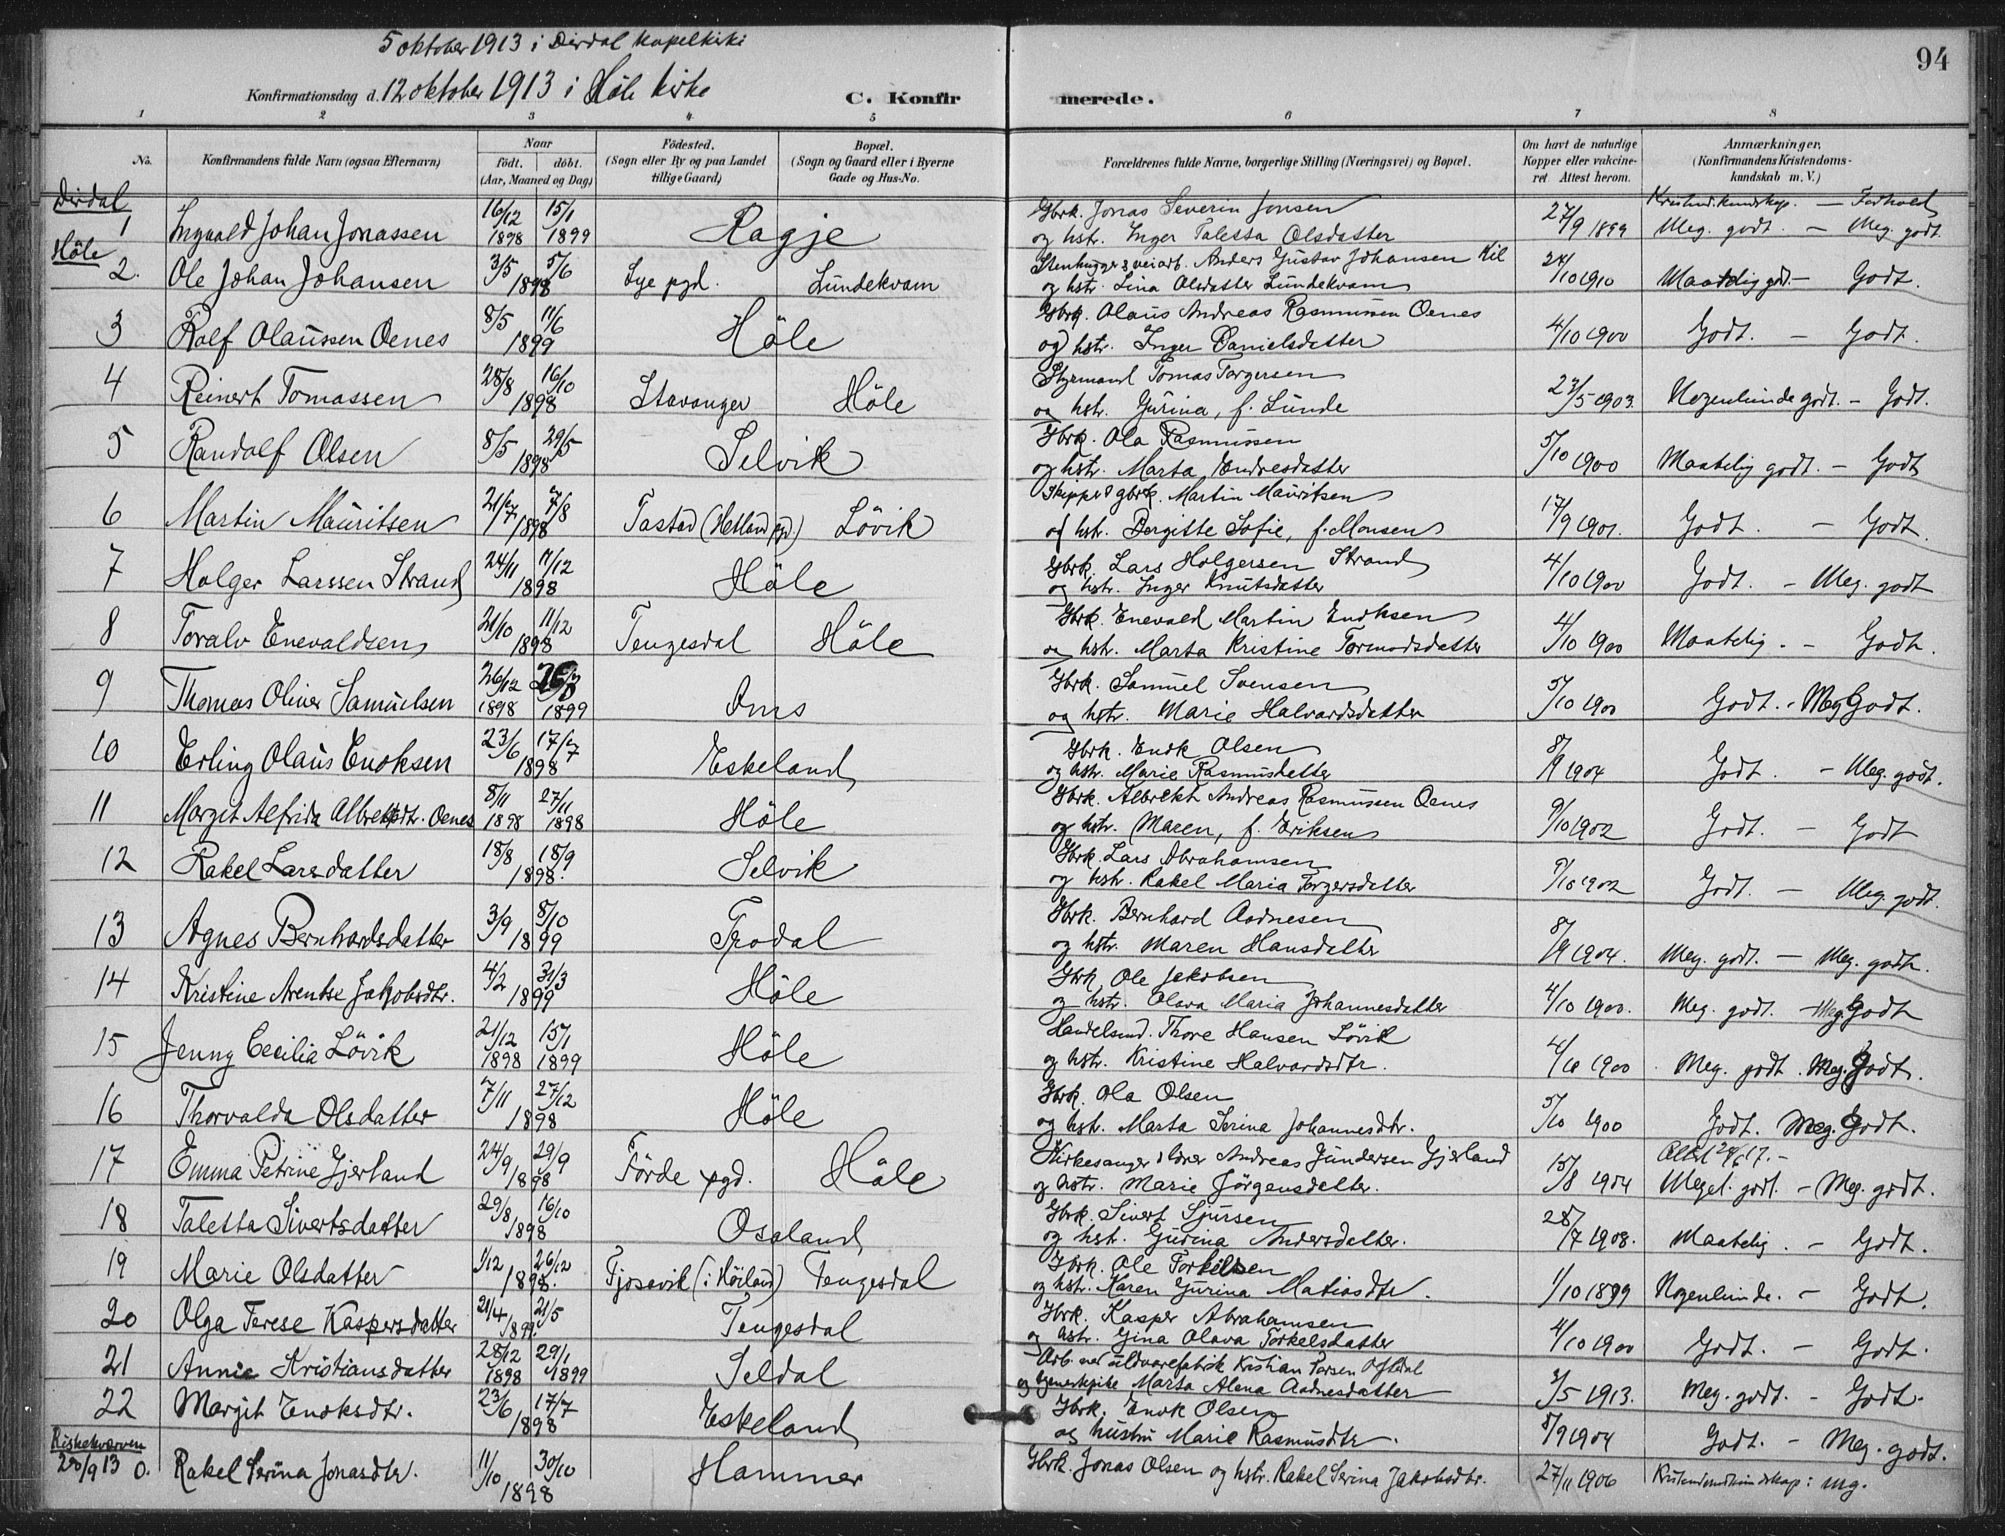 5 oktober 1913 i Dirdal kapelkirke
94
Konfirmationsdag d. 12 oktober 1913 i Höle kirke
C. Konfirmerede.
1 2 3 4 5 6 7 8
No.
Konfirmandens fulde Navn (ogsaa Efternavn)
Naar
født. døbt.
(Aar, Maaned og Dag)
Fødested.
(Sogn eller By og paa Landet
tillige Gaard)
Bopæl.
(Sogn og Gaard eller i Byerne
Gade og Hus-No.
Forældrenes fulde Navne, borgerlige Stilling (Næringsvei) og Bopæl.
Om havt de naturlige
Kopper eller vakcine-
ret. Attest herom.
Anmærkninger.
(Konfirmandens Kristendoms-
kundskab m. V.)
Dirdal
Kristend.kundskap. — Forhold
1 Ingvald Johan Jonassen 16/12 1898 15/1 1899 Ragje Gbrk. Jonas Severin Jonsen
og hstr. Inger Taletta Olsdatter 27/9 1899 Meg. godt. — Meg. godt.
Höle
2. Ole Johan Johansen 3/5 5/6 1898 Lye pgd. Lundekvam Stenhugger & veiarb. Anders Gustav Johansen Kil
og hstr. Lina Olsdatter Lundekvam 24/10 1910 Maatelig godt — Godt.
3 Rolf Olaussen Oenes 8/5 11/6 1899 Höle Gbrk. Olaus Andreas Rasmussen Oenes
og hstr. Inger Danielsdatter 4/10 1900 Godt. — Godt.
4 Reinert Tomassen 28/8 16/10 1898 Stavanger Höle Styrmand Tomas Torgersen
og hstr. Gurina, f. Lunde 23/5 1903. Nogenlunde godt. — Godt.
5 Randolf Olsen 8/5 29/5 1898 Selvik Gbrk. Ola Rasmussen
og hstr. Marta Endresdatter 5/10 1900 Maatelig godt. — Godt
6 Martin Mauritsen 21/7 7/8 1898 Tastad (Hetland pgd) Lövik Skipper & gbrk. Martin Mauritsen
og hstr. Bergitte Sofie, f. Monsen 17/9 1901. Godt. — Godt
7 Holger Larssen Strand 24/11 11/12 1898 Höle Gbrk. Lars Holgersen Strand
og hstr. Inger Knutsdatter 4/10 1900 Godt. — Meg. godt
8 Toralv Enevaldsen 21/10 11/12 1898 Tengesdal Höle Gbrk. Enevald Martin Endksen
og hstr. Marta Kristine Tormodsdatter 4/10 1900 Maatelig. — Godt.
9 Thomas Oliver Samuelsen 26/12 1898 1899 Ims Gbrk. Samuel Svensen
og hstr. Marie Halvardsdatter 5/10 1900 Godt. - Meg Godt.
10 Erling Olaus Enoksen 23/6 17/7 1898 Eskeland Gbrk. Enok Olsen
og hstr. Marie Rasmusdatter 8/9 1904 Godt. — Meg. godt.
11 Margit Alfrida Albretsdtr. Oenes 8/11 1898 27/11 1898 Höle Gbrk. Albrekt Andreas Rasmussen Oenes
og hstr. Maren, f. Eriksen 9/10 1902 Godt. — Godt
12 Rakel Larsdatter 18/8 18/9 1898. Selvik Gbrk. Lars Abrahamsen
og hstr. Rakel Maria Torgersdatter 9/10 1902 Godt. — Meg. godt.
13 Agnes Bernhardsdatter 3/9 8/10 1899 Frodal Gbrk. Bernhard Aadnesen
og hstr. Maren Hansdatter 8/9 1904. Meg. godt. — Meg. godt.
14 Kristine Arentse Jakobsdtr. 4/2 31/3 1899 Höle Gbrk. Ole Jakobsen
og hstr. Olava Maria Johannesdatter 4/10 1900. Meg. godt. — Meg. Godt
15 Jenny Cecilia Lövik 21/12 1898 15/1 1899 Höle Handelsmd. Thore Hansen Lövik
og hstr. Kristine Halvardsdtr. 4/10 1900. Meg. godt. Meg. Godt.
16 Thorvalda Olsdatter 7/11 27/12 1898 Höle Gbrk. Ola Olsen
og hstr. Marta Serina Johannesdtr. 5/10 1900 Godt. Meg. Godt.
17 Emma Petrine Gjerland 24/9 29/9 1898 Förde pgd. Höle Kirkesanger & lærer Andreas Gundersen Gjerland
og hstr. Marie Jörgensdatter. 15/8 1904 Meget godt. — Meg. godt.
18 Taletta Sivertsdatter 29/8 16/10 1898 Osaland Gbrk. Sivert Sjursen
og hstr. Gurina Andersdatter. 28/7 1908. Maatelig. — Godt.
19 Marie Olsdatter 1/12 26/12 1898. Tjosavik (i Höiland) Tengesdal Gbrk. Ole Torkilsen
og hstr. Karen Gurina Matiasdtr. 1/10 1899 Nogenlunde. — Godt.
20 Olga Terese Kaspersdatter 21/4 21/5 1899. Tengesdal Gbrk. Kasper Abrahamsen
og hstr. Gina Olava Torkelsdatter 4/10 1900 Godt. — Godt.
21 Annie Kristiansdatter 28/12 1898 29/1 1899 Seldal Arb. ved uldvarefabrik Kristian Larsen Oftedal
og tjenestepike Marta Alena Aadnesdatter 2/5 1913. Meg. godt. — Godt.
22 Margit Enoksdtr. 23/6 17/7 1898 Eskeland Gbrk. Enok Olsen
og hustru Marie Rasmusdtr. 8/9 1904 Godt. — Meg. godt.
28/9 13 0. Rakel Serina Jonasdtr. 11/10 30/10 1898 Hammer Gbrk. Jonas Olsen og hstr. Rakel Serina Jakobsdtr. 27/11 1906 Kristendomskundskap: mg.